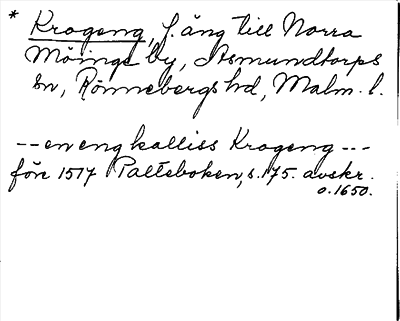 * Krogeng, f. äng till Norra
Möinge by, Asmundtorps
sn, Rönnebergs hd, Malm. l.
-- en eng kalliss Krogeng ---
före 1517 Palteboken, s. 175. avskr.
o. 1650.